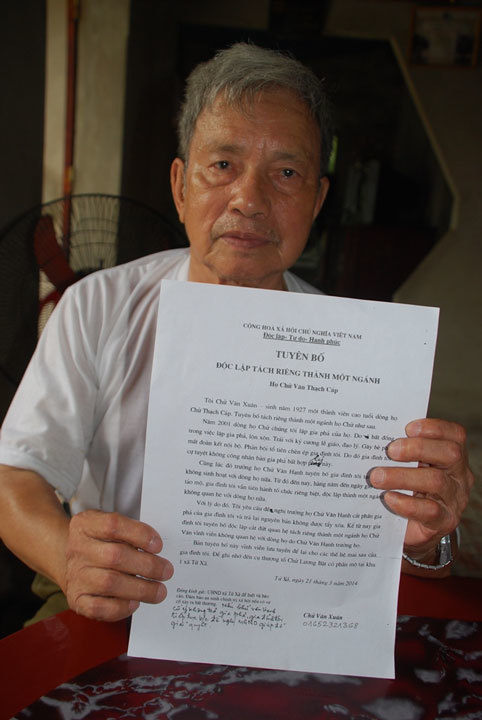 CÔNG HOÀ XÃ HỘI CHỦ NGHĨA VIỆT NAM
Độc lập- Tự do- Hạnh phúc
TUYÊN BỐ
ĐỘC LẬP TÁCH RIÊNG THÀNH MỘT NGÀNH
Họ Chử Văn Thạch Cáp
Tôi Chử Văn Xuân – sinh năm 1927 một thành viên cao tuổi dòng họ
Chử Thạch Cáp. Tuyên bố tách riêng thành một ngành họ Chử như sau.
Năm 2001 dòng họ Chử chúng tôi lập gia phả của họ. Do bất đồng
trong việc lập gia phả, lộn xộn. Trái với kỷ cương lễ giáo, đạo lý. Gây
mất đoàn kết nội bộ. Phân bội tổ tiên chèn ép gia đình tôi. Do đó gia đình tôi
cự tuyệt không công nhận bản gia phả bất hợp lý này.
Cùng lúc đó trưởng họ Chử Văn Hạnh tuyên bố gia đình tôi
không sinh hoạt với dòng họ nữa. Từ đó đến nay, hàng năm đến ngày
tảo mộ, gia đình tôi vẫn tiến hành tổ chức riêng biệt, độc lập thành một ngành
không quan hệ với dòng họ nữa.
Với lý do đó. Tôi yêu cầu đề nghị trưởng họ Chử Văn Hạnh cắt phần gia
phả của gia đình tôi và trả lại nguyên bản không được tẩy xóa. Kể từ nay gia
đình tôi tuyên bố độc lập cắt dứt quan hệ tách riêng thành một ngành họ Chử
Văn vĩnh viễn không quan hệ với dòng họ do Chử Văn Hạnh trưởng họ.
Bản tuyên bố này vĩnh viễn lưu truyền để lại cho các thế hệ mai sau của
gia đình tôi. Để ghi nhớ đến cụ thượng tổ Chử Lương Bật có phần mộ tại khu
1 xã Tứ Xã.
Tứ Xã, ngày 21 tháng 3 năm 2014
Đồng kính gửi: UBND xã Tứ Xã để biết và báo
cáo. Đảm bảo an ninh chính trị xã hội nếu có sự
cố xảy ra bất thường.
Chử Văn Xuân
01652321368